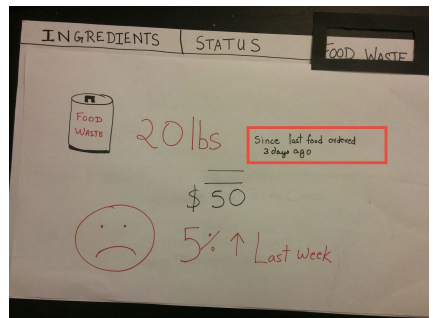 INGREDIENTS | STATUS FOOD WASTE
FOOD
WASTE
20 lbs
Since last food ordered
3 days ago
$ 50
5% ↑ Last week